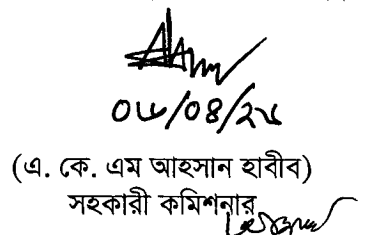 ০৬/০৪/২৬
(এ. কে. এম আহসান হাবীব)
সহকারী কমিশনার